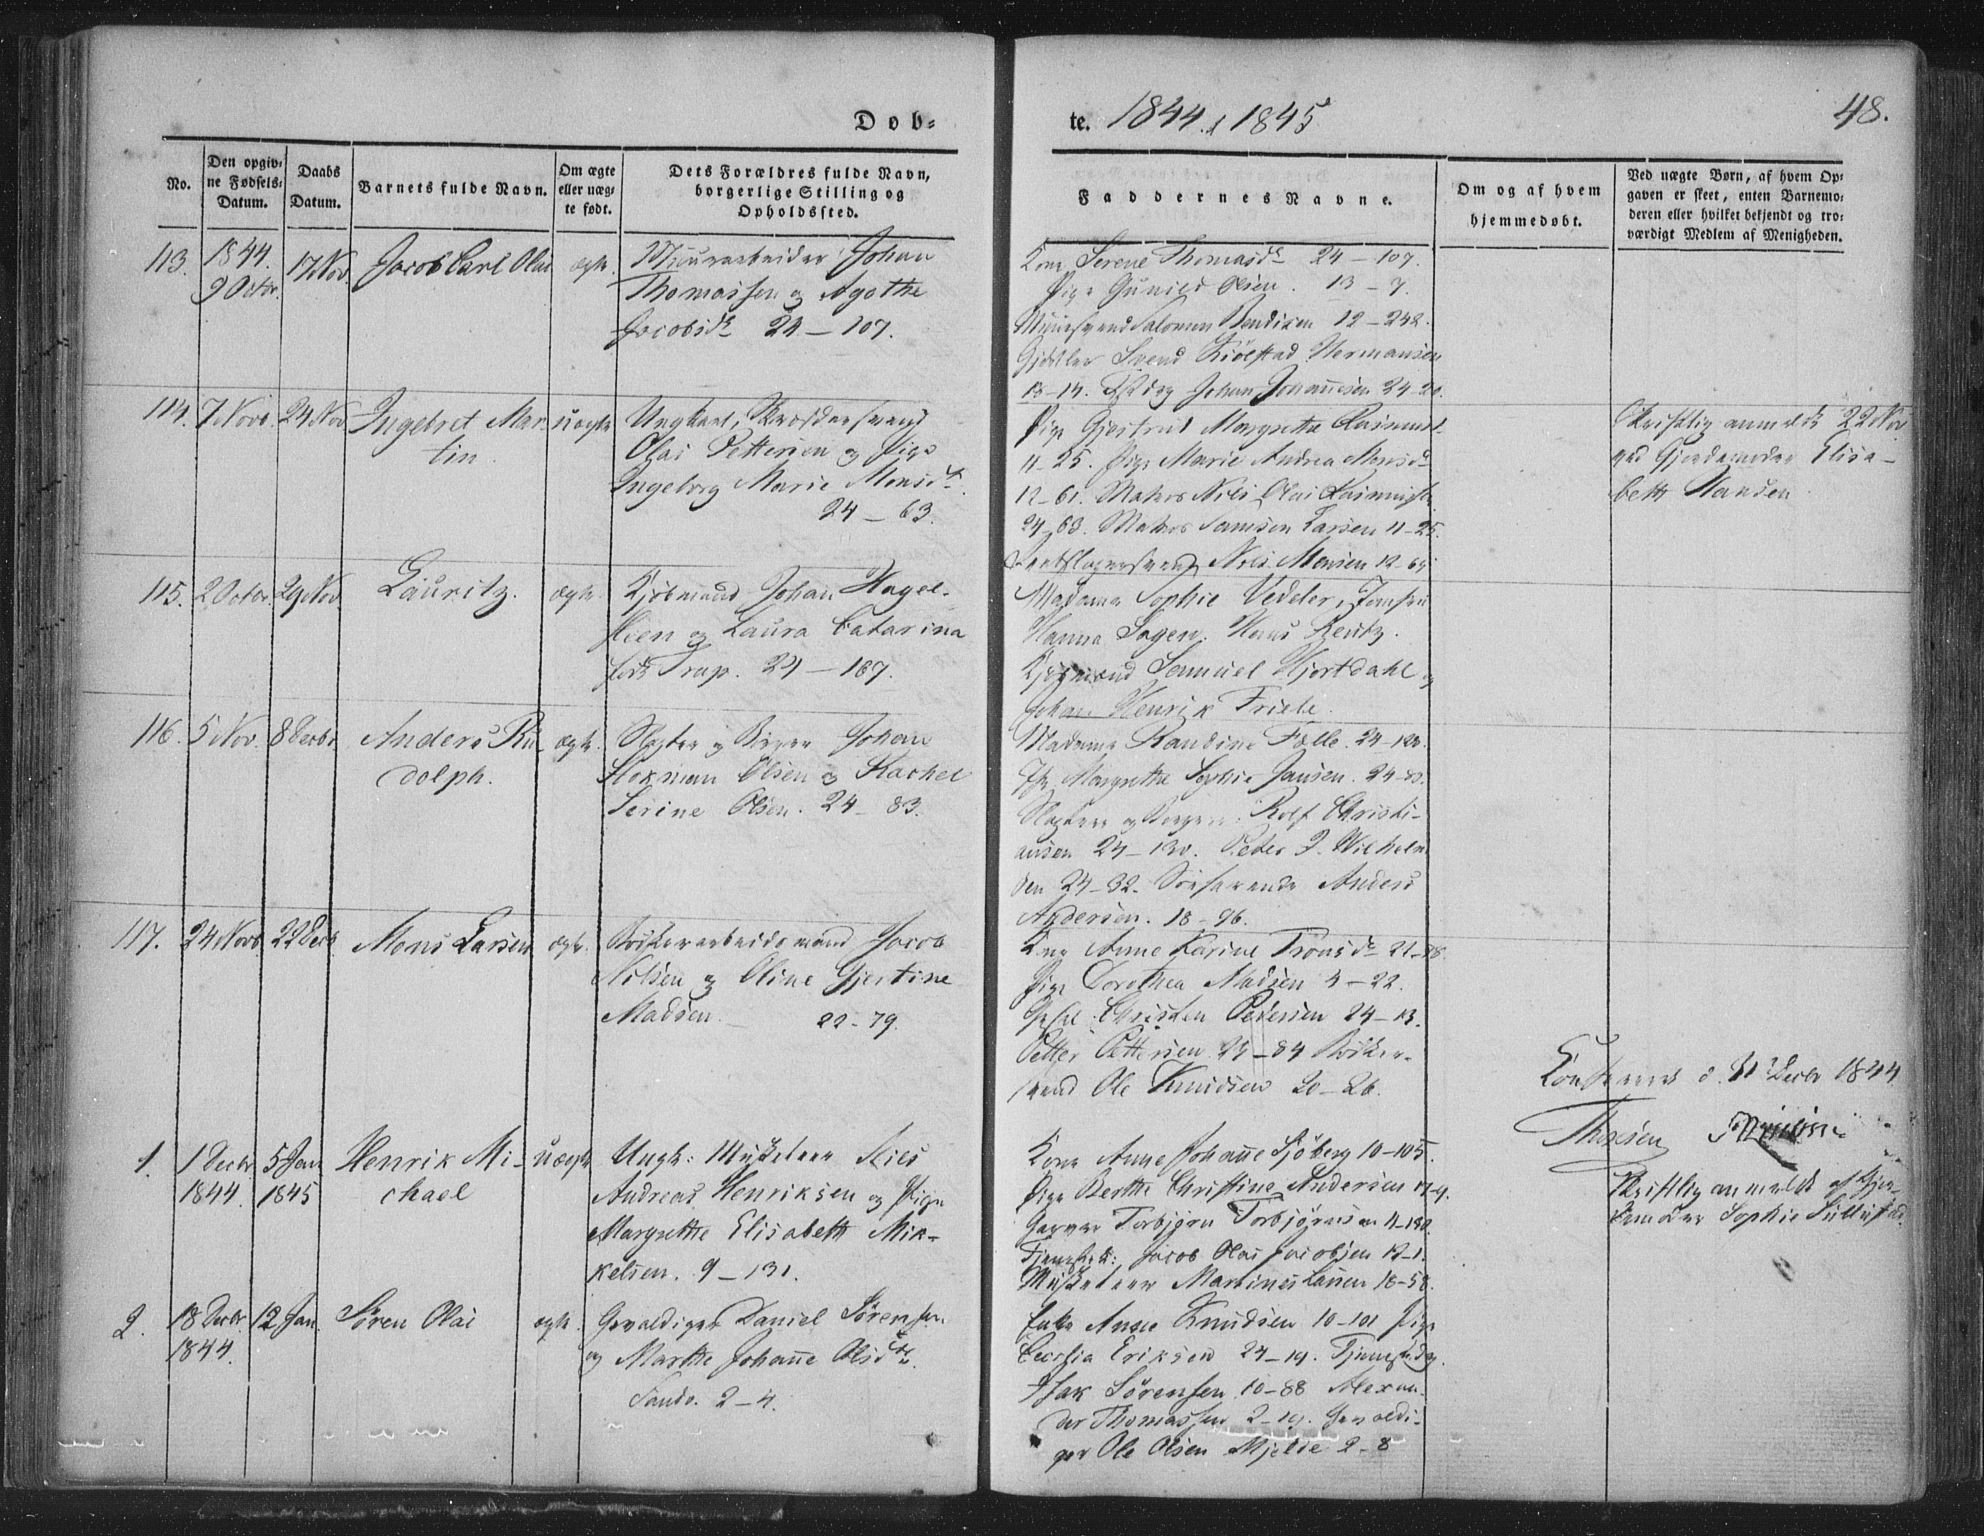 Dob-
te. 1844. & 1845
48.
No.
Den opgiv-
ne Fødsels-
Datum.
Daabs
Datum.
Barnets fulde Navn.
Om ægte
eller uæg-
te født.
Dets Forældres fulde Navn,
borgerlige Stilling og
Opholdssted.
Faddernes Navne.
Om og af hvem
hjemmedøbt.
Ved uægte Børn, af hvem Op-
gaven er skeet, enten Barnemo-
deren eller hvilket bekjendt og tro-
værdigt Medlem af Menigheden.
113.
1844.
9 Octbr.
17 Nov
Jacob Carl Olai
ægte.
Muurarbeider Johan
Thomassen og Agathe
Jacobsdr 24 - 107.
Kone Serene Thomasdr 24 - 107.
Pige Gunild Olsen. 13 - 7.
Muursvend Salomon Bendixen 12 - 248.
Gjørtler Svend Hermansen
13 - 14. Johan Johannesen 24-20.
114.
7 Novb.
24 Nov
Ingebret Mar-
tin.
uægte
Ungkarl, Skræddersvend
Olai Pettersen og Pige
Ingeborg Marie Monsdr.
24 - 63.
Pige Gjertrud Margrethe
11-25. Pige Marie Andrea Monsdr
12-61. Matros Nils Olai
24-63. Matros Samson Larsen 11-25.
Nils Monsen 12-61
Skriftlig anmeldt 22 Nov
ved Gjordemoder Elisa-
beth Hansen.
115.
2 Octbr.
29 Nov.
Lauritz.
ægte.
Kjøbmand Johan Hagel-
steen og Laura Catarina
født Trap. 24 - 107.
Madame Sophie Vedeler, Jomfru
Hanna Sagen. Hans Rentz.
Kjøbmænd Samuel Hjortdahl og
Johan Henrik Friele.
116.
5 Nov.
8 Decbr
Anders Ru-
dolph.
ægte.
Slagter og Borger Johan
Olsen og Rachel
Serine Olsen. 24 - 83.
Madame 24-130.
Margrethe Sophie Jansen. 24-83.
Slagtere og Borgere: Rolf Christi-
ansen 24-130. Peter J. Wilhelm-
sen 24-32. Søefarende Anders
Andersen. 18-96.
117.
24 Novb.
22 Decb.
Mons Larsen
ægte.
Bøkerarbeidsmand Jacob
Nilsen og Oline Gjertine
Madsen. 22-79.
Kone Anne Karine Tronsdr 21-88.
Pige Dorothea Madsen 4-22.
Christen Pedersen 24-13.
Petter Pettersen 24-84 Bøker-
svend Ole Knudsen 20-26.
Konfereret d. 31 Decbr 1844
Thoresen
1.
1 Decbr
1844.
5 Jan
1845
Henrik Mi-
chael
uægte
Ungk: Musketeer Nils
Andreas Henriksen og Pige
Margrethe Elisabeth Mik-
kelsen. 9 - 131.
Kone Anne Johanne Sjöberg 10-105.
Pige Berthe Christine Andersen 17-9.
Garver Torbjørn Torbjørnsen 11-180.
Jacob Olai Jacobsen 12-1.
Musketeer Martinus Larsen 18-58.
Skriftlig anmeldt af Gjor-
demoder Sophie
2.
18 Decbr
1844.
12 Jan.
Søren Olai
ægte.
Gevaldiger Daniel Sørensen
og Marthe Johanne Olsdtr.
2-4.
Enke Anne Knudsen 10-101 Pige
Cecilia Eriksen 24-19.
Isak Sørensen 10-88 Alexan-
der Thomassen 2-19. Gevaldi-
ger Ole Olsen Mjelde 2-8